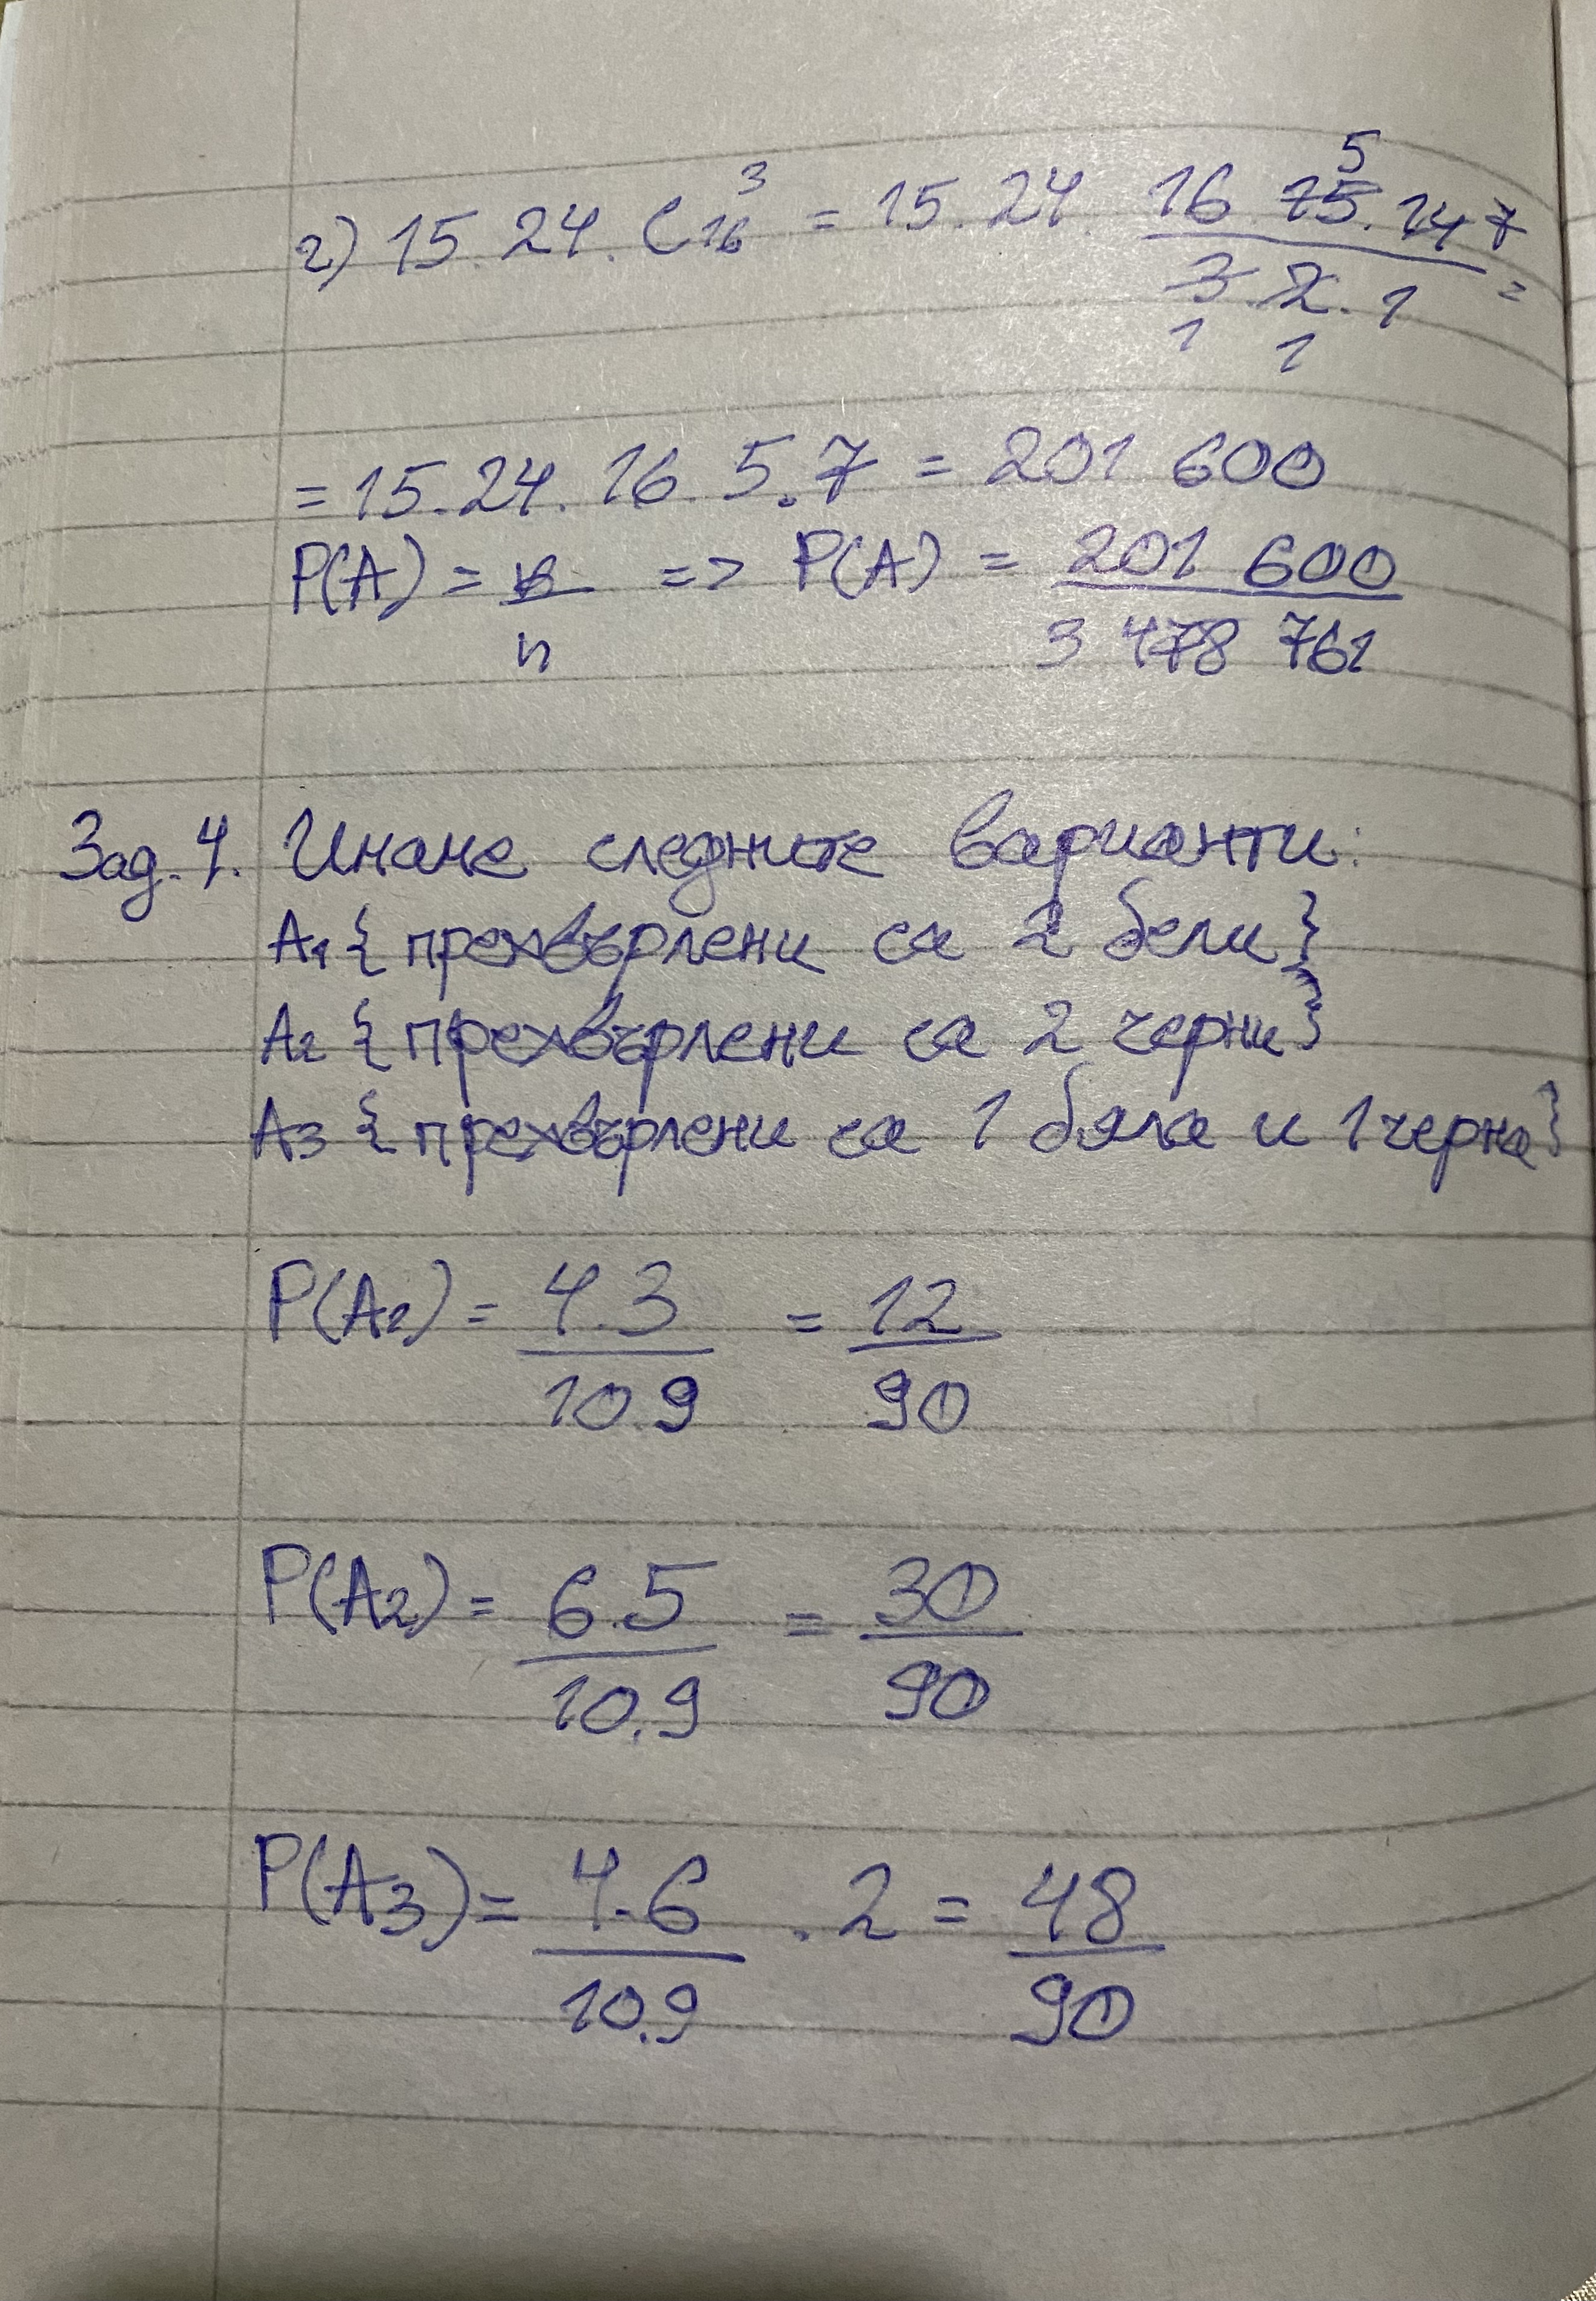 г) 15.24.C₁₆³ = 15.24. (16.15.14)/(3.2.1) =
5 7 1 1
= 15.24.16.5.7 = 201 600
P(A) = k/n => P(A) = 201 600/3 478 761
Зад.4. Имаме следните варианти:
A₁ {прехвърлени са 2 бели}
A₂ {прехвърлени са 2 черни}
A₃ {прехвърлени са 1 бяла и 1 черна}
P(A₁) = 4.3/10.9 = 12/90
P(A₂) = 6.5/10.9 = 30/90
P(A₃) = 4.6/10.9 . 2 = 48/90